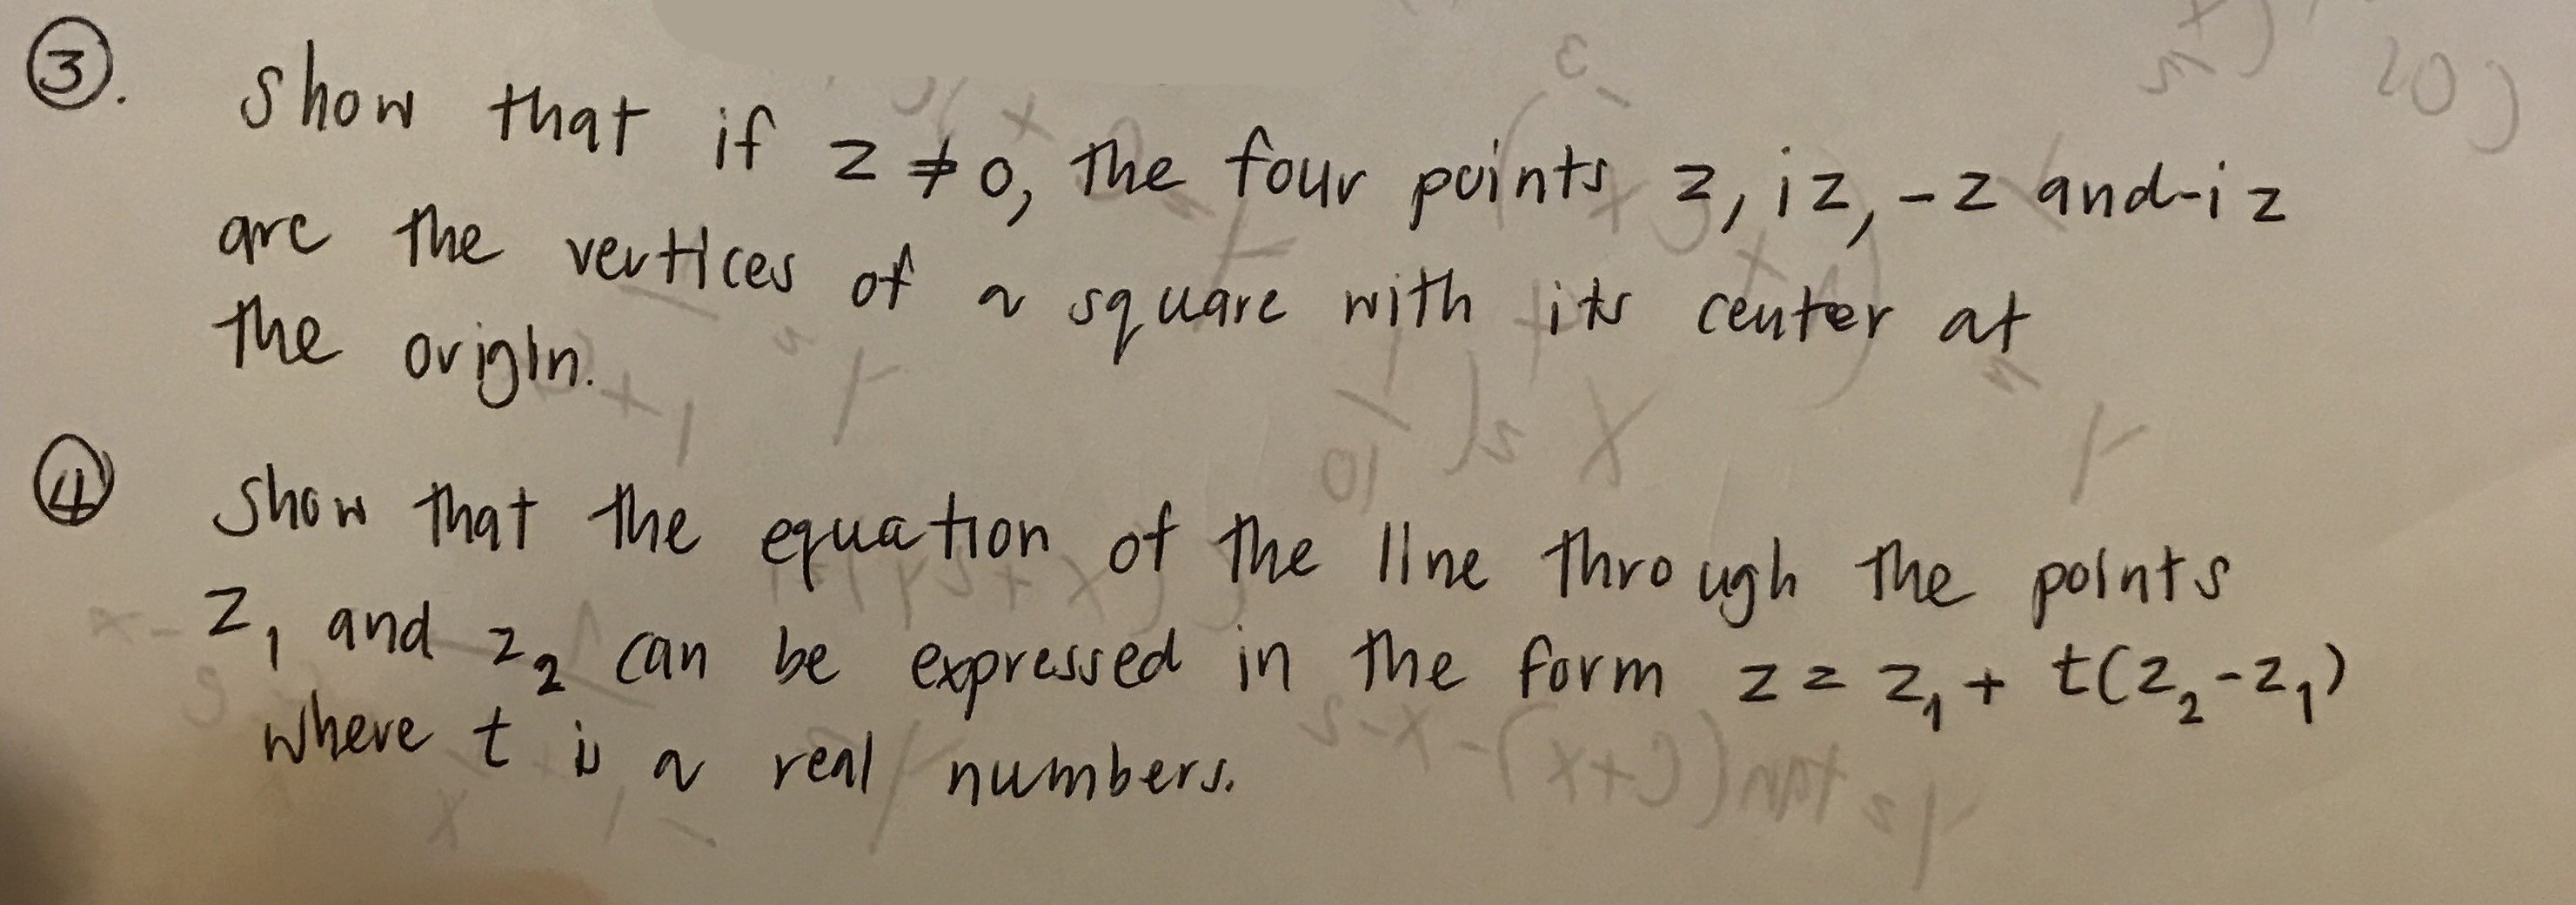 ③. Show that if z ≠ 0, the four points z, iz, -z and -iz
are the vertices of a square with its center at
the origin.
④ Show that the equation of the line through the points
z₁ and z₂ can be expressed in the form z = z₁ + t(z₂-z₁)
where t is a real numbers.